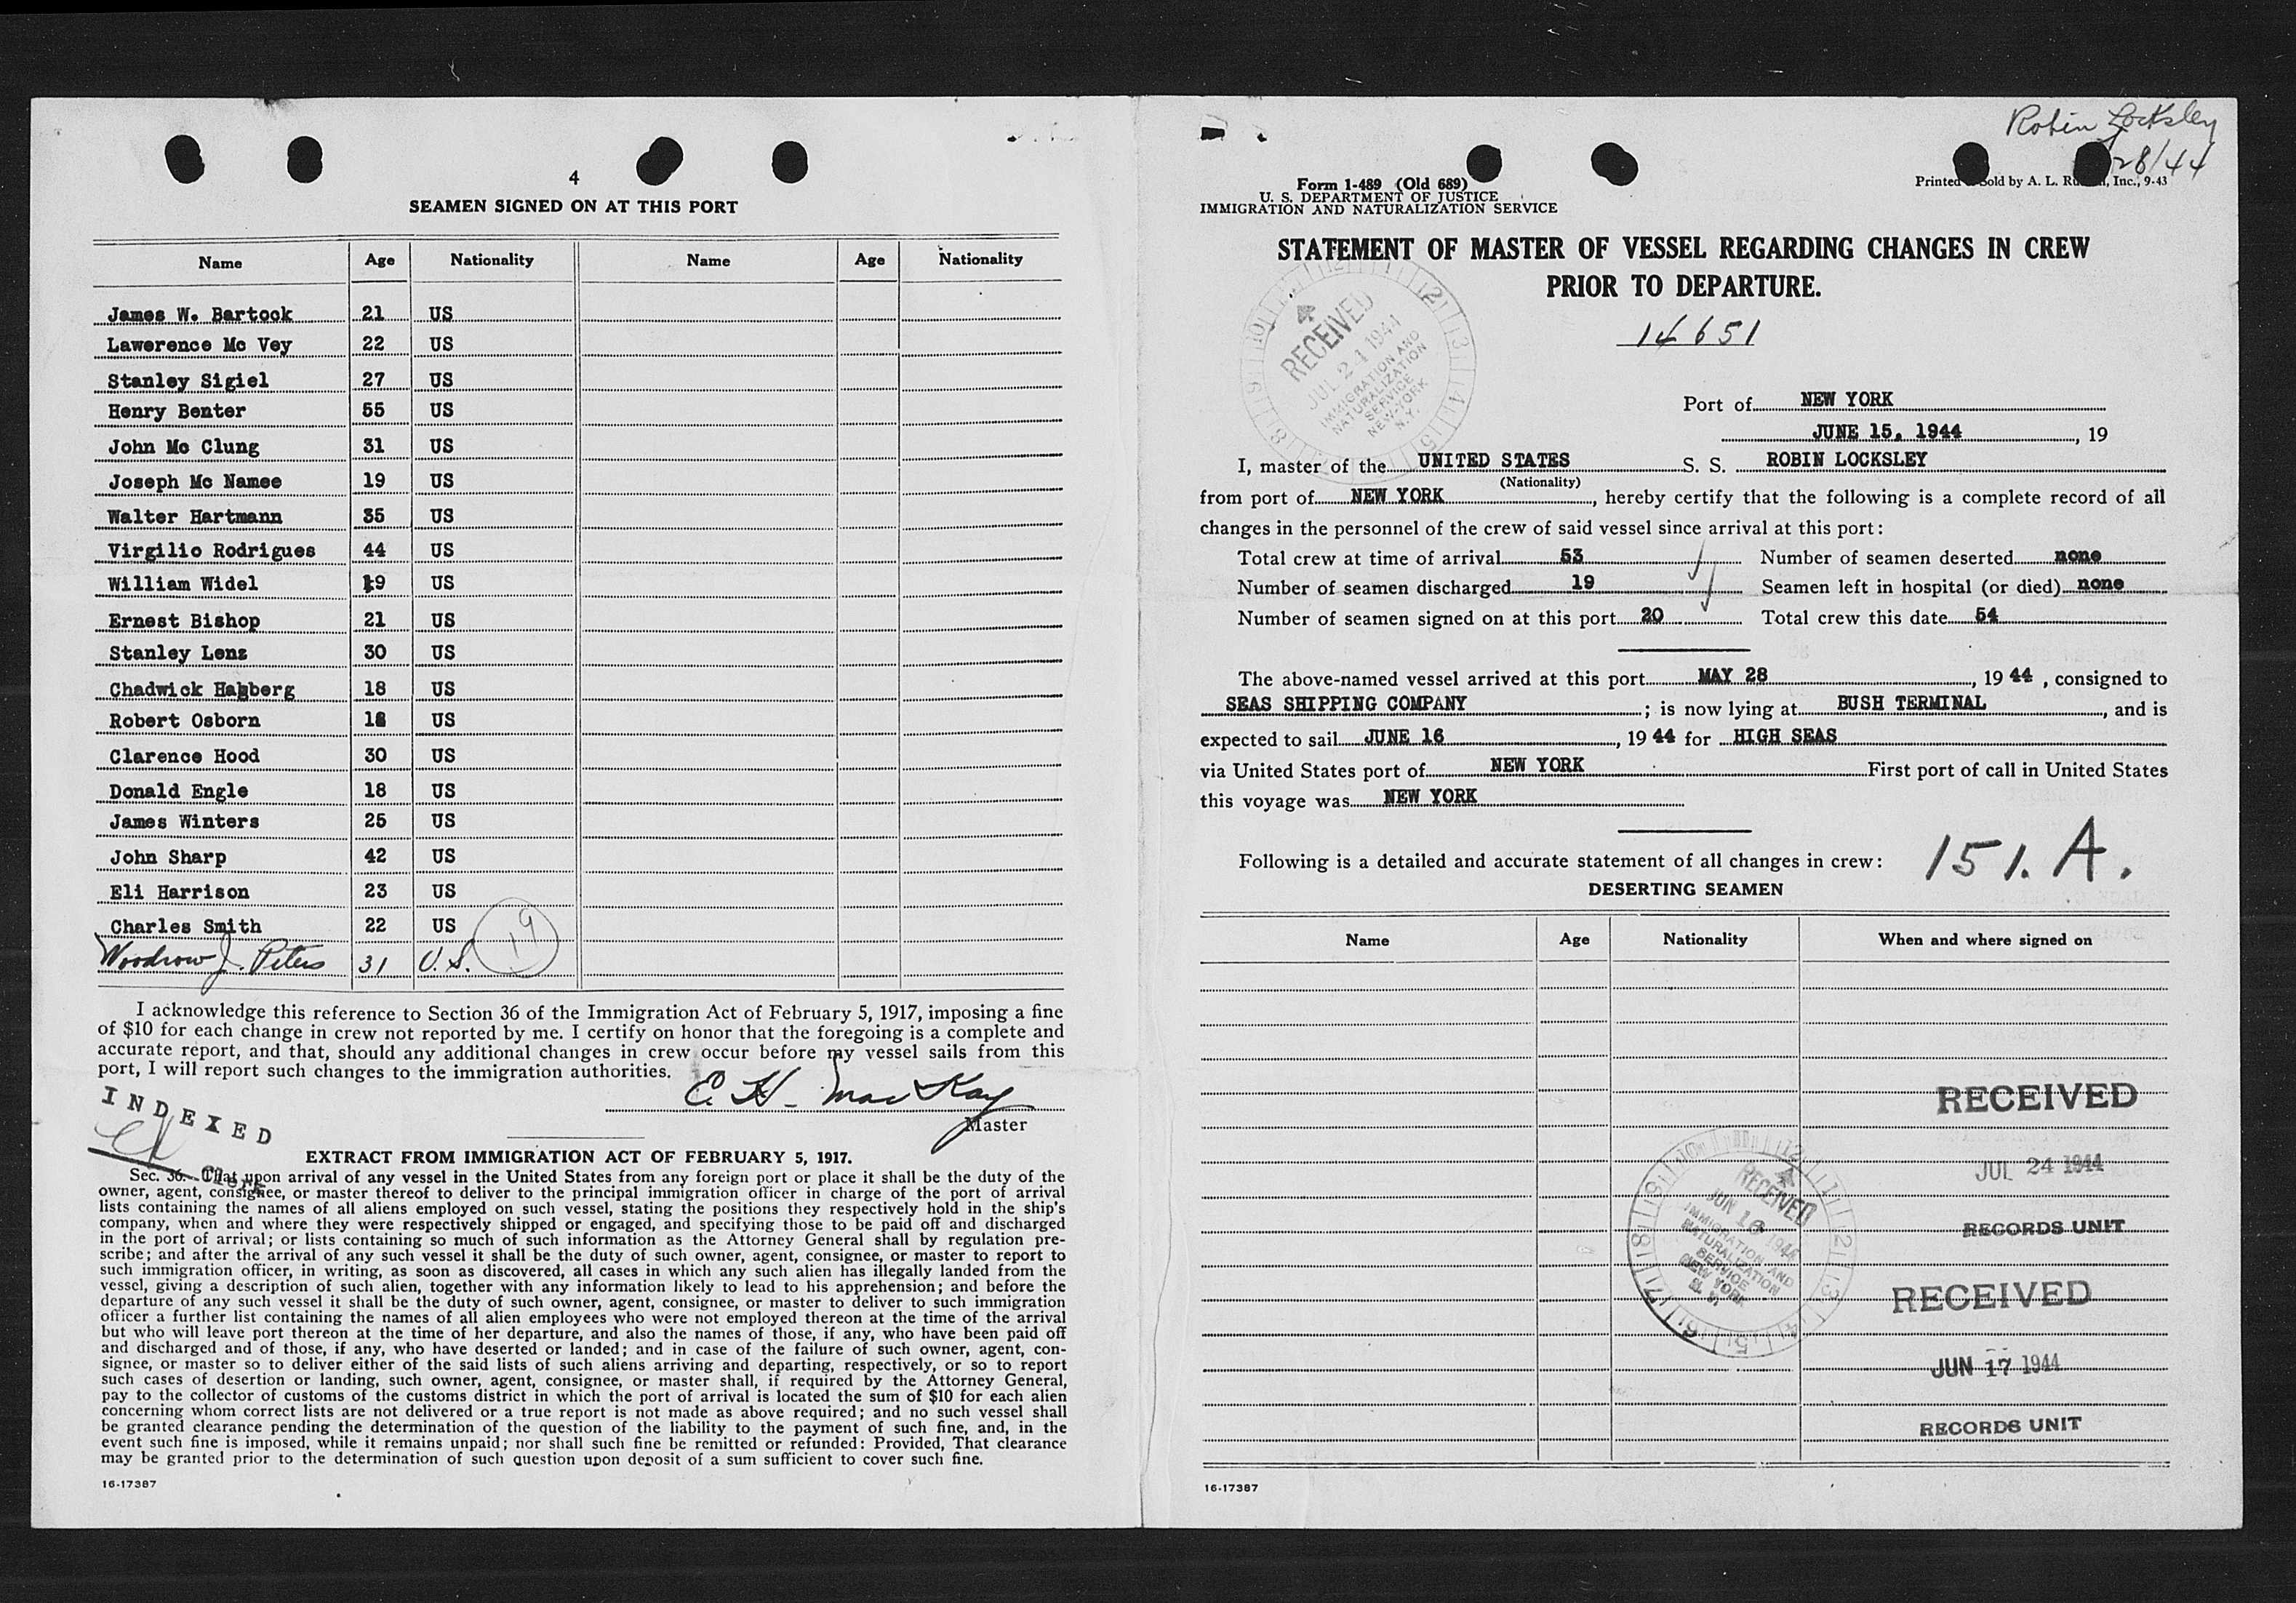 4
SEAMEN SIGNED ON AT THIS PORT
Name Age Nationality Name Age Nationality
James W. Bartock 21 US
Lawerence Mc Vey 22 US
Stanley Sigiel 27 US
Henry Benter 55 US
John Mc Clung 31 US
Joseph Mc Namee 19 US
Walter Hartmann 35 US
Virgilio Rodrigues 44 US
William Widel 19 US
Ernest Bishop 21 US
Stanley Lenz 30 US
Chadwick Hagberg 18 US
Robert Osborn 18 US
Clarence Hood 30 US
Donald Engle 18 US
James Winters 25 US
John Sharp 42 US
Eli Harrison 23 US
Charles Smith 22 US
19
Woodrow J. Peters 31 U.S.
I acknowledge this reference to Section 36 of the Immigration Act of February 5, 1917, imposing a fine
of $10 for each change in crew not reported by me. I certify on honor that the foregoing is a complete and
accurate report, and that, should any additional changes in crew occur before my vessel sails from this
port, I will report such changes to the immigration authorities.
E. H. MacKay
Master
INDEXED
EXTRACT FROM IMMIGRATION ACT OF FEBRUARY 5, 1917.
Sec. 36. That upon arrival of any vessel in the United States from any foreign port or place it shall be the duty of the
owner, agent, consignee, or master thereof to deliver to the principal immigration officer in charge of the port of arrival
lists containing the names of all aliens employed on such vessel, stating the positions they respectively hold in the ship's
company, when and where they were respectively shipped or engaged, and specifying those to be paid off and discharged
in the port of arrival; or lists containing so much of such information as the Attorney General shall by regulation pre-
scribe; and after the arrival of any such vessel it shall be the duty of such owner, agent, consignee, or master to report to
such immigration officer, in writing, as soon as discovered, all cases in which any such alien has illegally landed from the
vessel, giving a description of such alien, together with any information likely to lead to his apprehension; and before the
departure of any such vessel it shall be the duty of such owner, agent, consignee, or master to deliver to such immigration
officer a further list containing the names of all alien employees who were not employed thereon at the time of the arrival
but who will leave port thereon at the time of her departure, and also the names of those, if any, who have been paid off
and discharged and of those, if any, who have deserted or landed; and in case of the failure of such owner, agent, con-
signee, or master so to deliver either of the said lists of such aliens arriving and departing, respectively, or so to report
such cases of desertion or landing, such owner, agent, consignee, or master shall, if required by the Attorney General,
pay to the collector of customs of the customs district in which the port of arrival is located the sum of $10 for each alien
concerning whom correct lists are not delivered or a true report is not made as above required; and no such vessel shall
be granted clearance pending the determination of the question of the liability to the payment of such fine, and, in the
event such fine is imposed, while it remains unpaid; nor shall such fine be remitted or refunded: Provided, That clearance
may be granted prior to the determination of such question upon deposit of a sum sufficient to cover such fine.
16-17387
Robin Locksley
28/44
Form I-489 (Old 689)
U. S. DEPARTMENT OF JUSTICE
IMMIGRATION AND NATURALIZATION SERVICE
Printed Sold by A. L. Inc., 9-43
STATEMENT OF MASTER OF VESSEL REGARDING CHANGES IN CREW
PRIOR TO DEPARTURE.
14651
RECEIVED
JUL 24 1944
IMMIGRATION AND
NATURALIZATION
SERVICE
NEW-YORK
N.Y.
Port of NEW YORK
JUNE 15, 1944, 19
I, master of the UNITED STATES S. S. ROBIN LOCKSLEY
(Nationality)
from port of NEW YORK, hereby certify that the following is a complete record of all
changes in the personnel of the crew of said vessel since arrival at this port:
Total crew at time of arrival 53 Number of seamen deserted none
Number of seamen discharged 19 Seamen left in hospital (or died) none
Number of seamen signed on at this port 20 Total crew this date 54
The above-named vessel arrived at this port MAY 28, 1944, consigned to
SEAS SHIPPING COMPANY; is now lying at BUSH TERMINAL, and is
expected to sail JUNE 16, 1944 for HIGH SEAS
via United States port of NEW YORK First port of call in United States
this voyage was NEW YORK
Following is a detailed and accurate statement of all changes in crew:
151. A.
DESERTING SEAMEN
Name Age Nationality When and where signed on
RECEIVED
JUL 24 1944
RECORDS UNIT
RECEIVED
JUN 16 1944
IMMIGRATION AND
NATURALIZATION
SERVICE
NEW YORK
N. Y.
RECEIVED
JUN 17 1944
RECORDS UNIT
16-17387